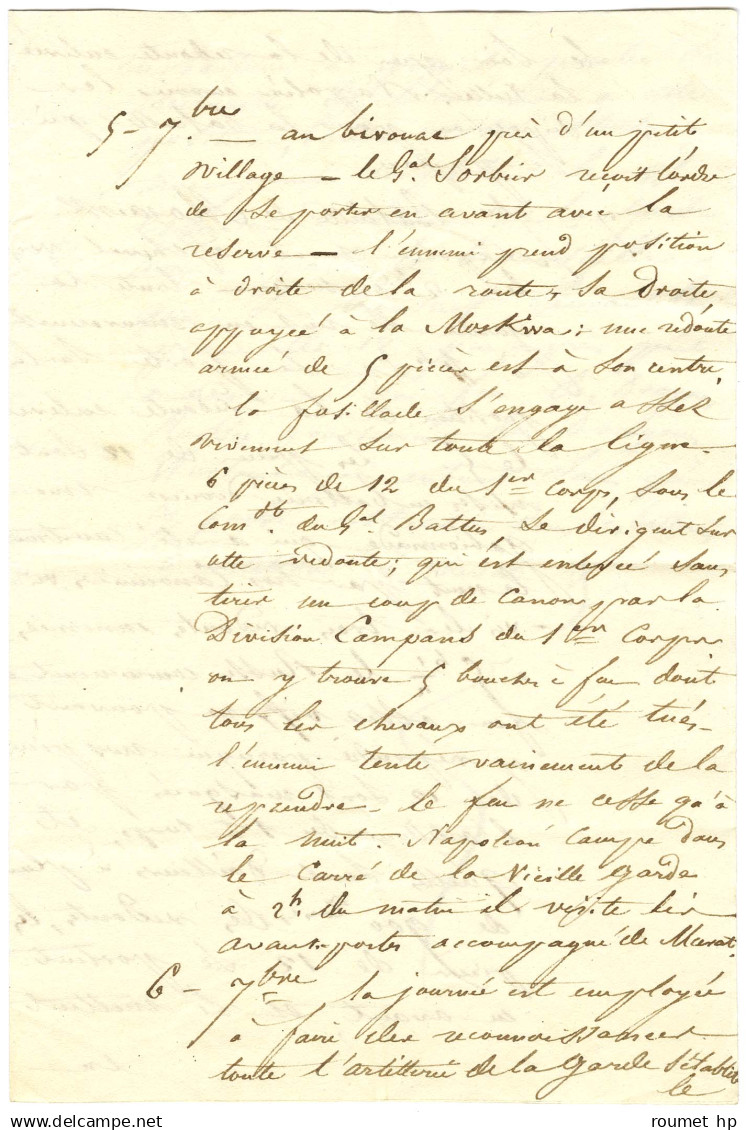 5 - 7.bre — au bivouac près d'un petit
village — le Gal. Sorbier reçoit l'ordre
de se porter en avant avec la
reserve — l'ennemi prend position
à droite de la route, sa droite
appuyée à la Moskwa; une redoute
armée de 5 pièces est à son centre
la fusillade s'engage assez
vivement sur toute la ligne.
6 pièces de 12 du 1er corps, sous le
Comdt. du Gal. Battus, se dirigent sur
cette redoute; qui est enlevée sans
tirer un coup de canon, par la
Division Campans du 1er Corps
on y trouve 5 bouches à feu dont
tous les chevaux ont été tués.
l'ennemi tente vainement de la
reprendre. le feu ne cesse qu'à
la nuit. Napoléon campe dans
le Carré de la Vieille Garde
à 2h. du matin il visite les
avant-postes accompagné de Murat.
6 - 7bre la journée est employée
à faire des reconnoissances
toute l'artillerie de la Garde s'établit
le
roumet hp